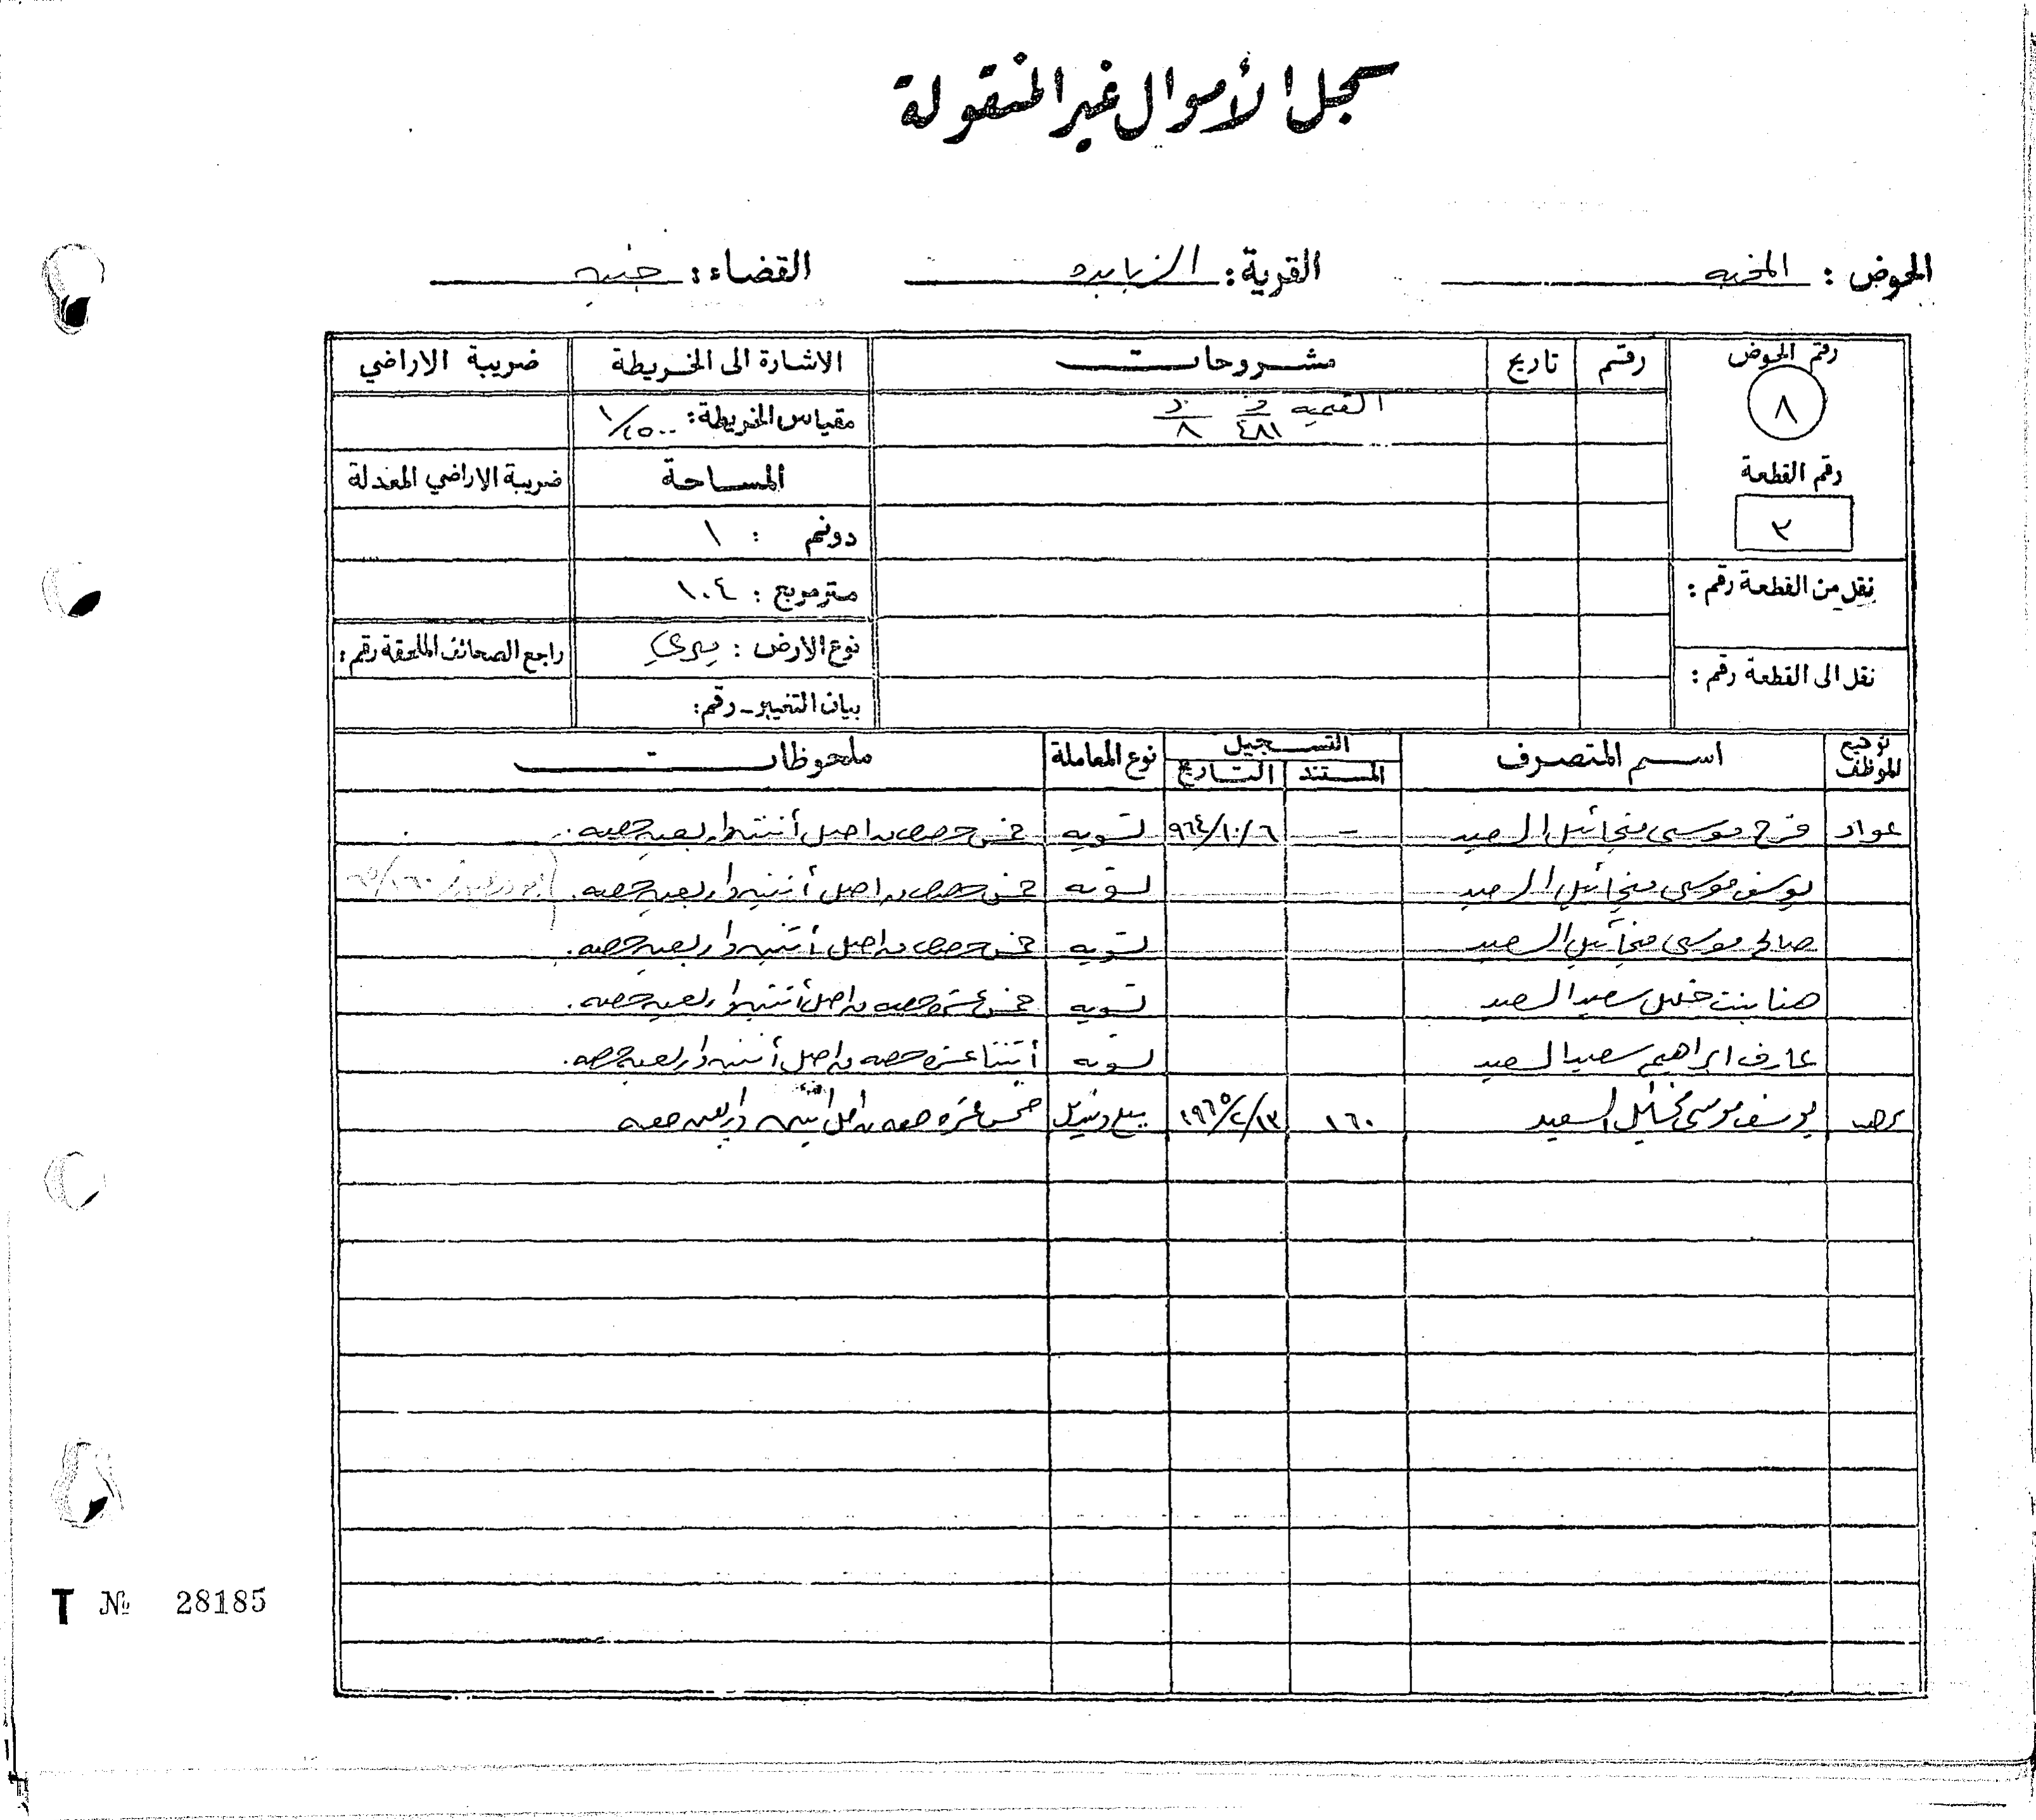 سجل الأموال غير المنقولة
الحوض : المخبه القرية : الزبابده القضاء : جنين
رقم الحوض رقم تاريخ مشروحات الاشارة الى الخريطة ضريبة الاراضي
٨ القيمة د/٤٨١ ف/٨ مقياس الخريطة : ١/٢٥٠٠
رقم القطعة المساحة ضريبة الاراضي المعدلة
٣ دونم : ١
نقل من القطعة رقم : متر مربع : ١٠٤
نوع الارض : ميري راجع الصحائف الملحقة رقم :
نقل الى القطعة رقم : بيان التغيير - رقم :
توقيع الموظف اسم المتصرف التسجيل المستند التاريخ نوع المعاملة ملحوظات
عواد فرح موسى مخائيل السعيد - ٩٦٤/١٠/٦ تسويه خمس حصص من اصل أثنتين واربعين حصه .
يوسف موسى مخائيل السعيد تسويه خمس حصص من اصل أثنتين واربعين حصه .
صالح موسى مخائيل السعيد تسويه خمس حصص من اصل أثنتين واربعين حصه .
هنا بنت خليل سعيد السعيد تسويه خمس عشرة حصه من اصل أثنتين واربعين حصه .
عارف ابراهيم سعيد السعيد تسويه أثنتا عشره حصه من اصل أثنتين واربعين حصه .
يوسف موسى مخائيل السعيد ١٦٠ ١٩٦٥/٢/١٣ بيع وتنزيل خمس عشره حصه من اصل اثنتين واربعين حصه
T № 28185